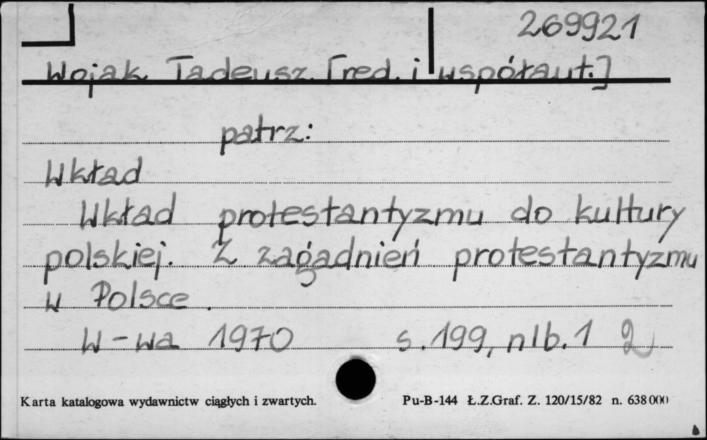 269921
Wojak Tadeusz. [red. i współaut.]
patrz:
Wkład
Wkład protestantyzmu do kultury
polskiej. Z zagadnień protestantyzmu
w Polsce.
W-wa 1970 s. 199, nlb. 1 2
Karta katalogowa wydawnictw ciągłych i zwartych. Pu-B-144 Ł.Z.Graf. Z. 120/15/82 n. 638 000